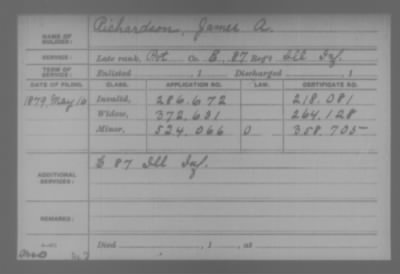 NAME OF SOLDIER: Richardson, James A.
SERVICE: Late rank, Pvt Co. E, 87 Reg't Ill Inf.
TERM OF SERVICE: Enlisted , 1 Discharged , 1
DATE OF FILING. CLASS. APPLICATION NO. LAW. CERTIFICATE NO.
1879, May 16 Invalid, 286.672 218.081
Widow, 372.631 264.128
Minor, 524.066 O 358.705
ADDITIONAL SERVICES: E 87 Ill Inf.
REMARKS:
Died , 1 , at